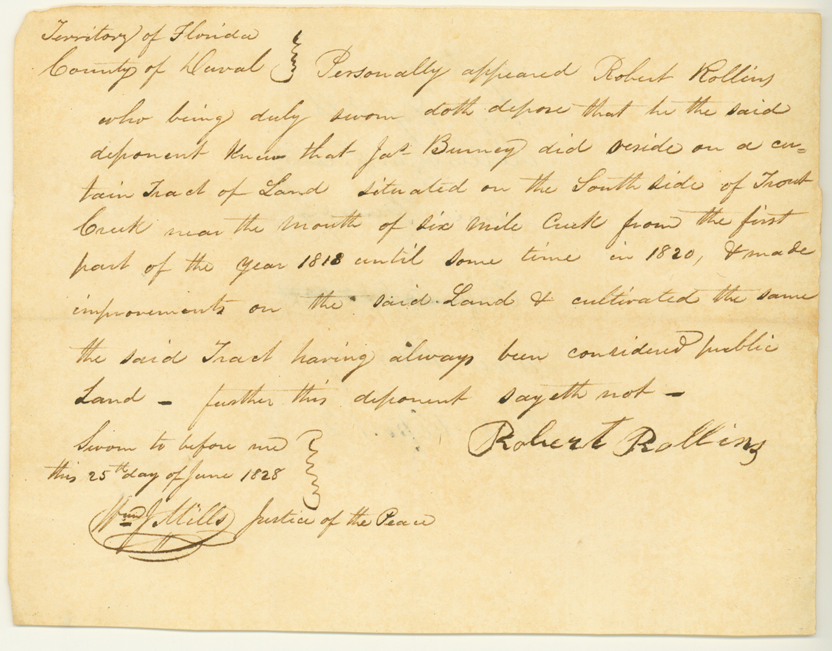 Territory of Florida
County of Duval } Personally appeared Robert Rollins
who being duly sworn doth depose that he the said
deponent knew that Jas. Burney did reside on a cer=
tain Tract of Land situated on the South side of Trout
Creek near the mouth of six mile Creek from the first
part of the year 1818 until some time in 1820, & made
improvements on the said Land & cultivated the same
the said Tract having always been considered public
Land – further this deponent sayeth not –
Sworn to before me }
this 25th day of June 1828
Robert Rollins
Wm J Mills Justice of the Peace